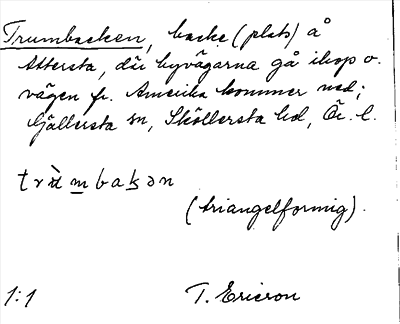 Trumbacken, backe (plats) å
Attersta, där byvägarna gå ihop o.
vägen fr. Amerika kommer ned;
Gällersta sn, Sköllersta hd, Ör. l.
(triangelformig).
1:1 T. Ericson